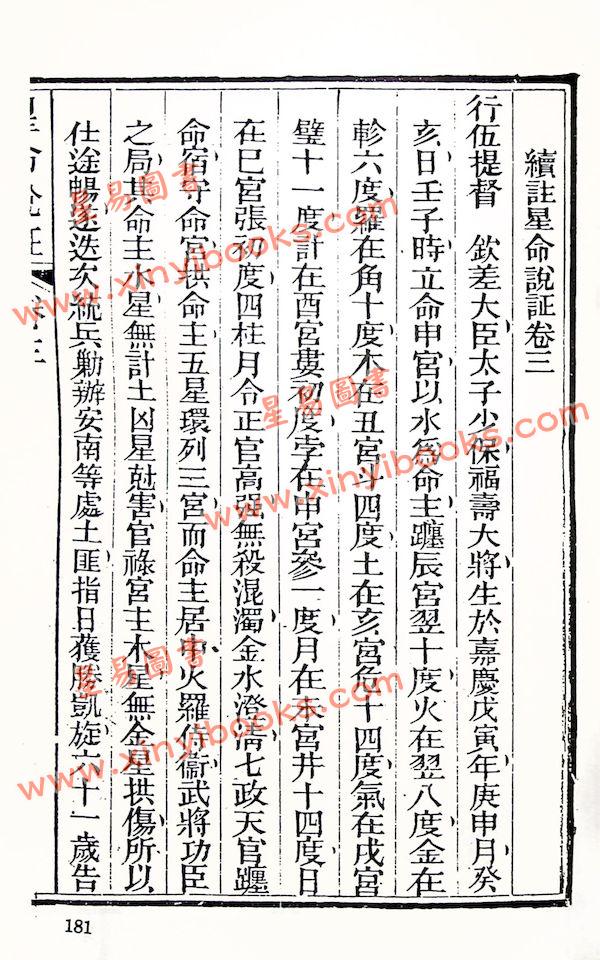 續註星命說証卷三
行伍提督 欽差大臣太子少保福壽大將生於嘉慶戊寅年庚申月癸
亥日壬子時立命申宮以水爲命主躔辰宮翌十度火在翌八度金在
軫六度羅在角十度木在丑宮斗四度土在亥宮危十四度氣在戌宮
璧十一度計在酉宮婁初度孛在申宮參一度月在未宮井十四度日
在巳宮張初度四柱月令正官高强無殺混濁金水澄淸七政天官躔
命宿守命宮拱命主五星環列三宮而命主居中火羅侍衞武將功臣
之局其命主水星無計土凶星尅害官祿宮主木星無金星拱傷所以
仕途暢遂迭次統兵勦辦安南等處土匪指日獲勝凱旋六十一歲告
星命說証 卷三
181
星易圖書
www.xinyibooks.com
星易圖書
www.xinyibooks.com
星易圖書
www.xinyibooks.com